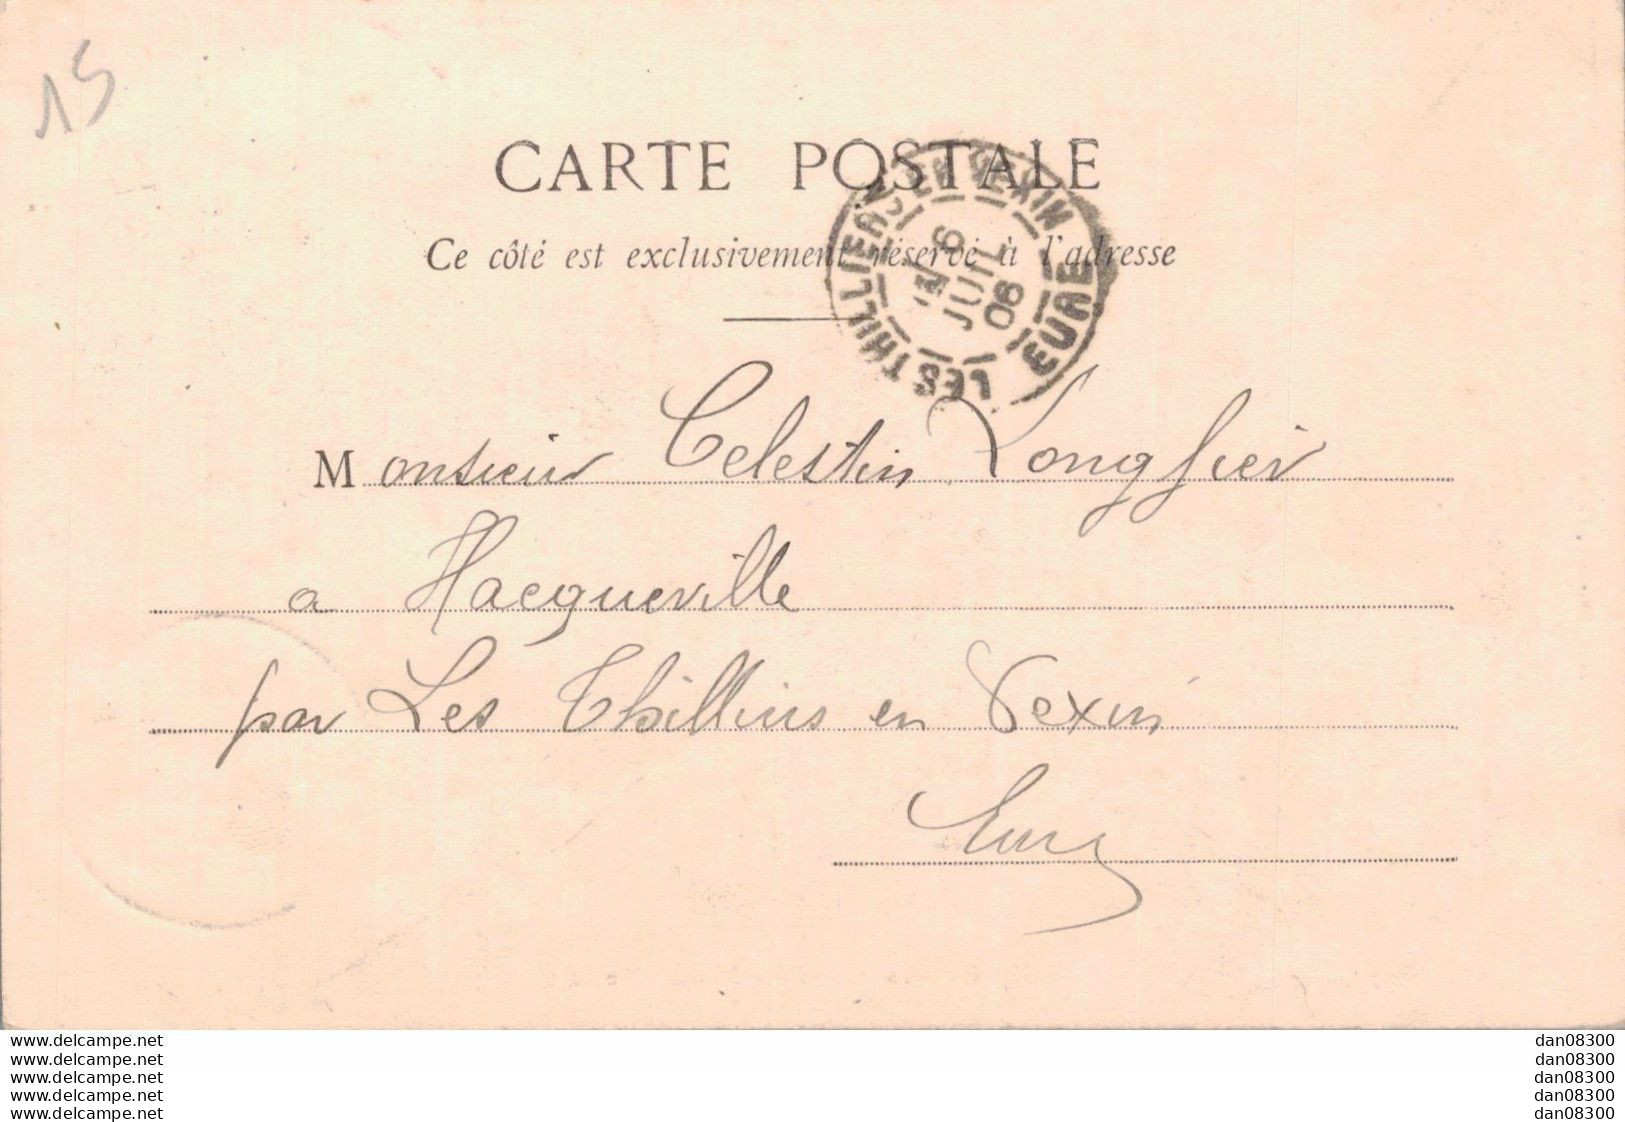 15
CARTE POSTALE
Ce côté est exclusivement réservé à l'adresse
LES THILLIERS-EN-VEXIN EURE
6
JUIL
06
Monsieur Celestin Longfier
a Hacqueville
par Les Thilliers en Vexin
Eure
www.delcampe.net
www.delcampe.net
www.delcampe.net
www.delcampe.net
www.delcampe.net
dan08300
dan08300
dan08300
dan08300
dan08300